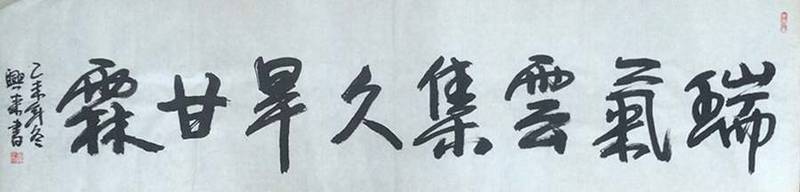 瑞氣雲集久旱甘霖
乙未年冬
興東書